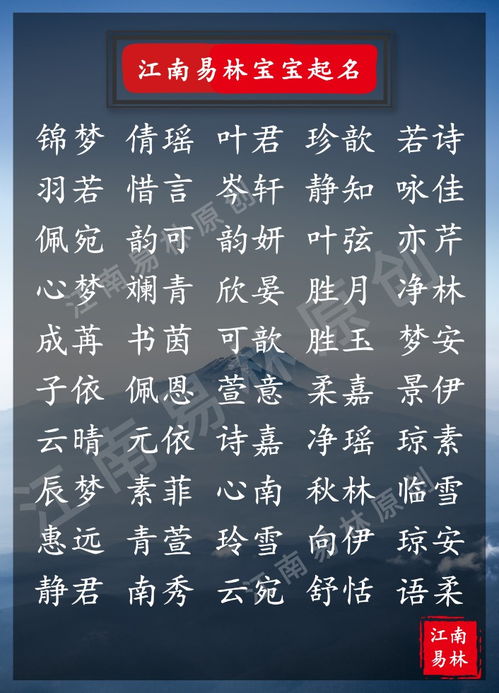 江南易林宝宝起名
锦梦 倩瑶 叶君 珍歆 若诗
羽若 惜言 岑轩 静知 咏佳
佩宛 韵可 韵妍 叶弦 亦芹
心梦 斓青 欣晏 胜月 净林
成苒 书茵 可歆 胜玉 梦安
子依 佩恩 萱意 柔嘉 景伊
云晴 元依 诗嘉 净瑶 琼素
辰梦 素菲 心南 秋林 临雪
惠远 青萱 玲雪 向伊 琼安
静君 南秀 云宛 舒恬 语柔
江南易林原创
江南易林原创
江南易林原创
江南
易林